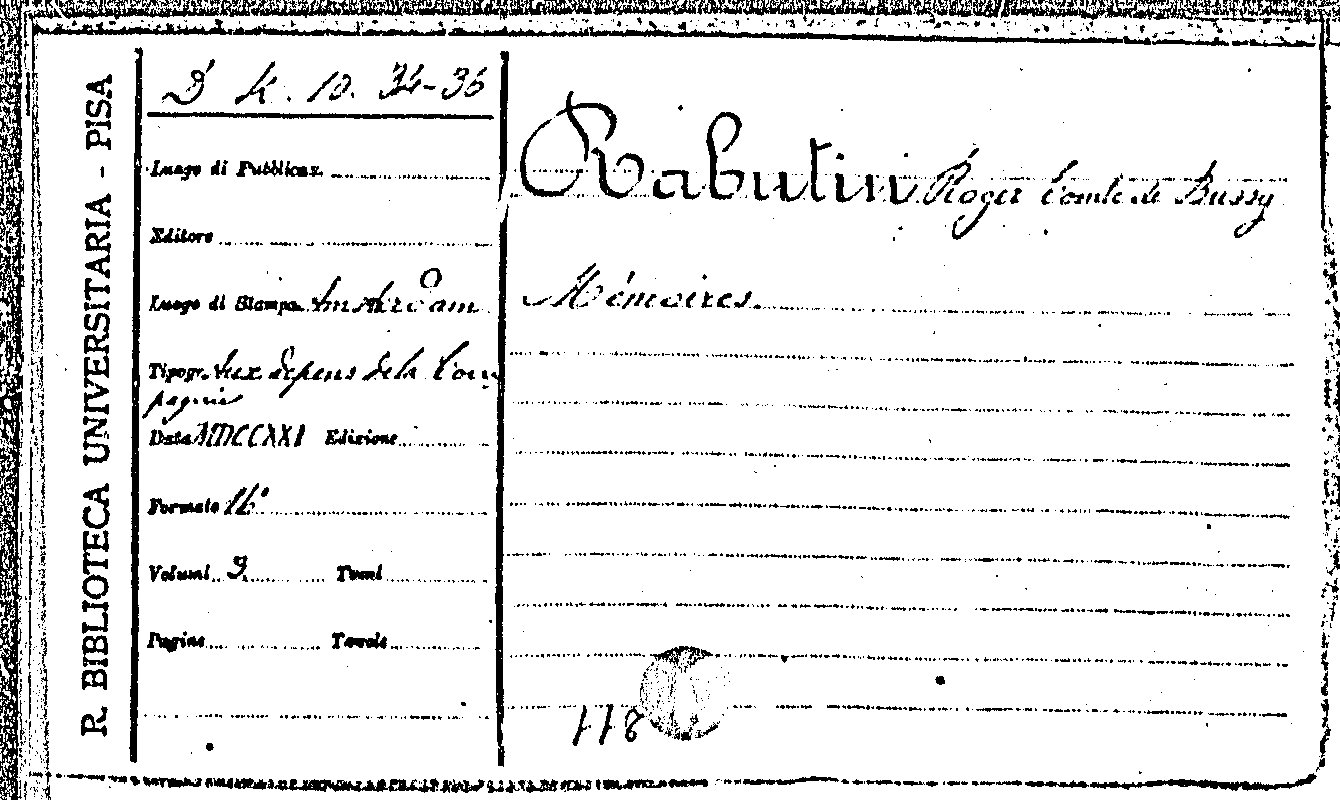 R. BIBLIOTECA UNIVERSITARIA - PISA
D K. 10. 34-36
Luogo di Pubblicaz.
Editore
Luogo di Stampa Amsterdam
Tipogr. Aux depens de la Com
pagnie
Data MDCCXXI Edizione
Formato 16°
Volumi 3 Tomi
Pagine Tavole
Rabutin Roger Comte de Bussy
Mémoires.
118